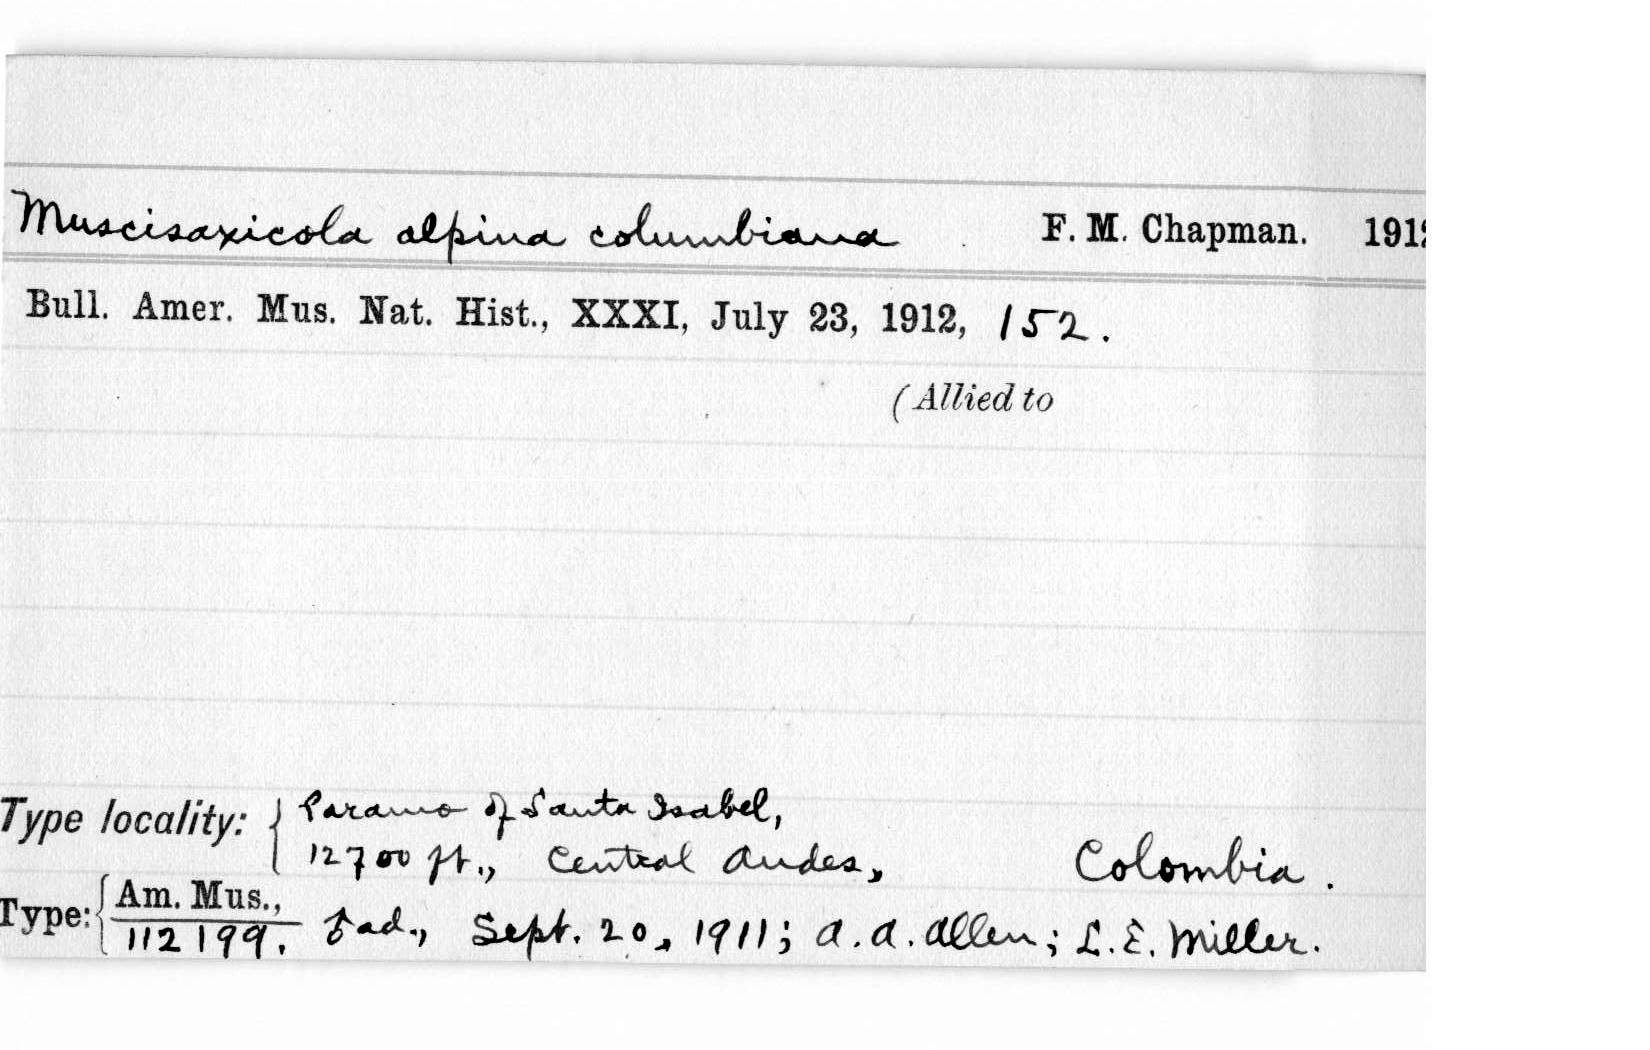 Muscisaxicola alpina columbiana F. M. Chapman. 1912
Bull. Amer. Mus. Nat. Hist., XXXI, July 23, 1912, 152.
(Allied to
Type locality: { Paramo of Santa Isabel,
12700 ft., Central Andes, Colombia.
Type: { Am. Mus.,
112199. ad., Sept. 20, 1911; A. A. Allen; L. E. Miller.